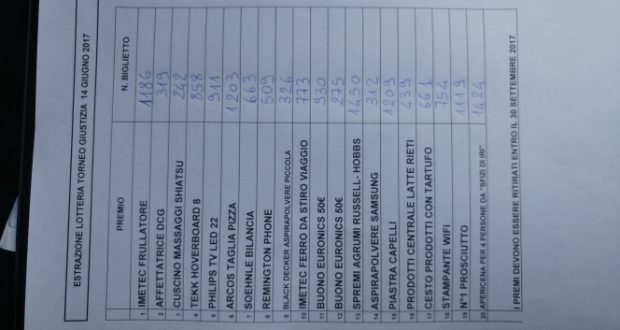 ESTRAZIONE LOTTERIA TORNEO GIUSTIZIA 14 GIUGNO 2017
PREMIO N. BIGLIETTO
1 IMETEC FRULLATORE 1186
2 AFFETTATRICE DCG 319
3 CUSCINO MASSAGGI SHIATSU 242
4 TEKK HOVERBOARD 8 858
5 PHILIPS TV LED 22 911
6 ARCOS TAGLIA PIZZA 1203
7 SOEHNLE BILANCIA 663
8 REMINGTON PHONE 509
9 BLACK DECKER ASPIRAPOLVERE PICCOLA 326
10 IMETEC FERRO DA STIRO VIAGGIO 773
11 BUONO EURONICS 50€ 930
12 BUONO EURONICS 50€ 275
13 SPREMI AGRUMI RUSSELL- HOBBS 1450
14 ASPIRAPOLVERE SAMSUNG 312
15 PIASTRA CAPELLI 1209
16 PRODOTTI CENTRALE LATTE RIETI 439
17 CESTO PRODOTTI CON TARTUFO 661
18 STAMPANTE WIFI 754
19 N°1 PROSCIUTTO 1119
20 APERICENA PER 4 PERSONE DA "SFIZI DI IRI" 1424
I PREMI DEVONO ESSERE RITIRATI ENTRO IL 30 SETTEMBRE 2017